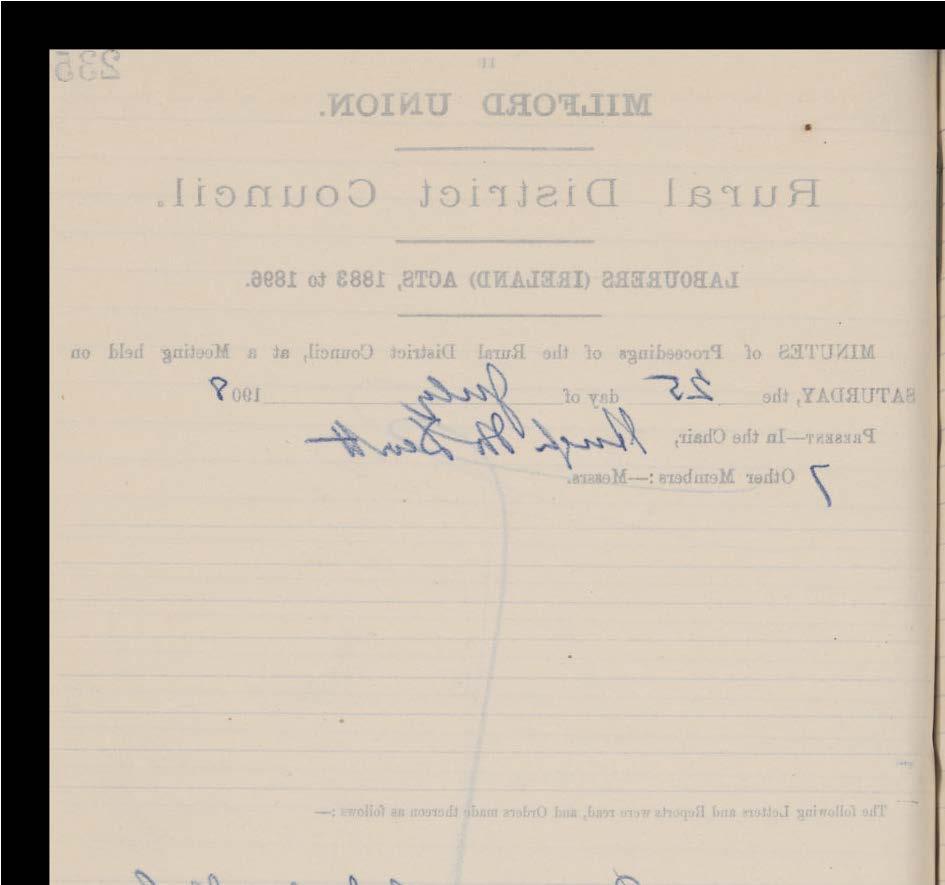 235
MILFORD UNION.
Rural District Council.
LABOURERS (IRELAND) ACTS, 1883 to 1896.
MINUTES of Proceedings of the Rural District Council, at a Meeting held on
SATURDAY, the 25 day of July 1908
PRESENT—In the Chair, Hugh
7 Other Members :—Messrs.
The following Letters and Reports were read, and Orders made thereon as follows :—